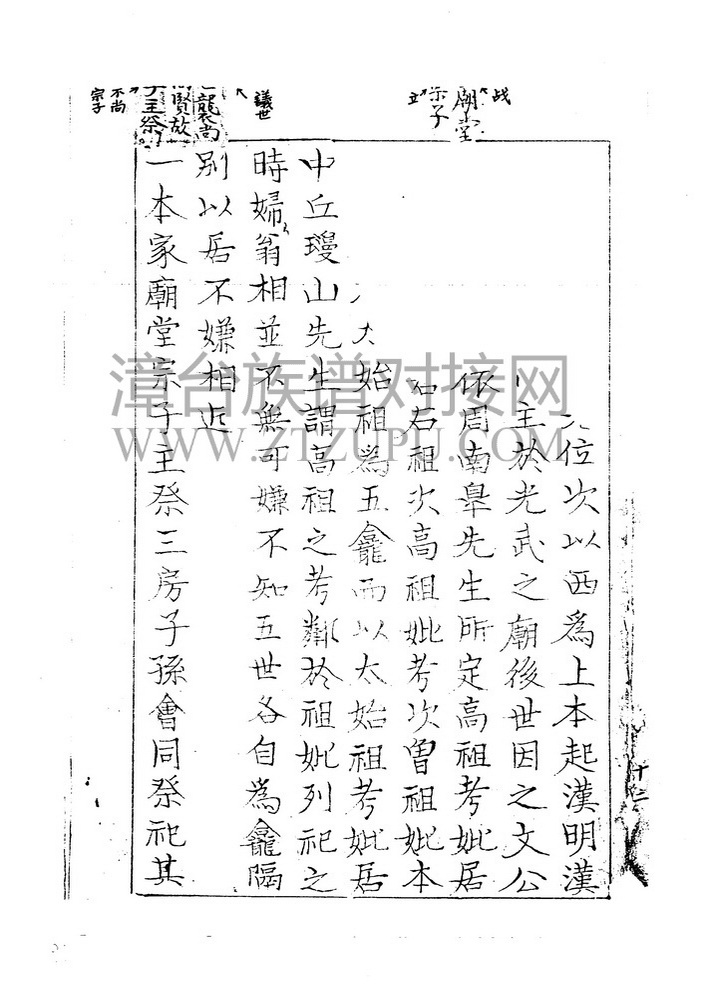 位次以西爲上本起漢明漢
主於光武之廟後世因之文公
依周南皋先生所定高祖考妣居
右祖次高祖妣考次曾祖妣本
始祖爲五龕而以太始祖考妣居
中丘瓊山先生謂高祖之考鄰於祖妣列祀之
時婦翁相並不無可嫌不知五世各自爲龕隔
别以居不嫌相近
一本家廟堂宗子主祭三房子孫會同祭祀其
廟堂
宗子
議世
龍尚
賢故
主祭
不尚
宗子
漳台族谱对接网
WWW.ZTZUPU.COM